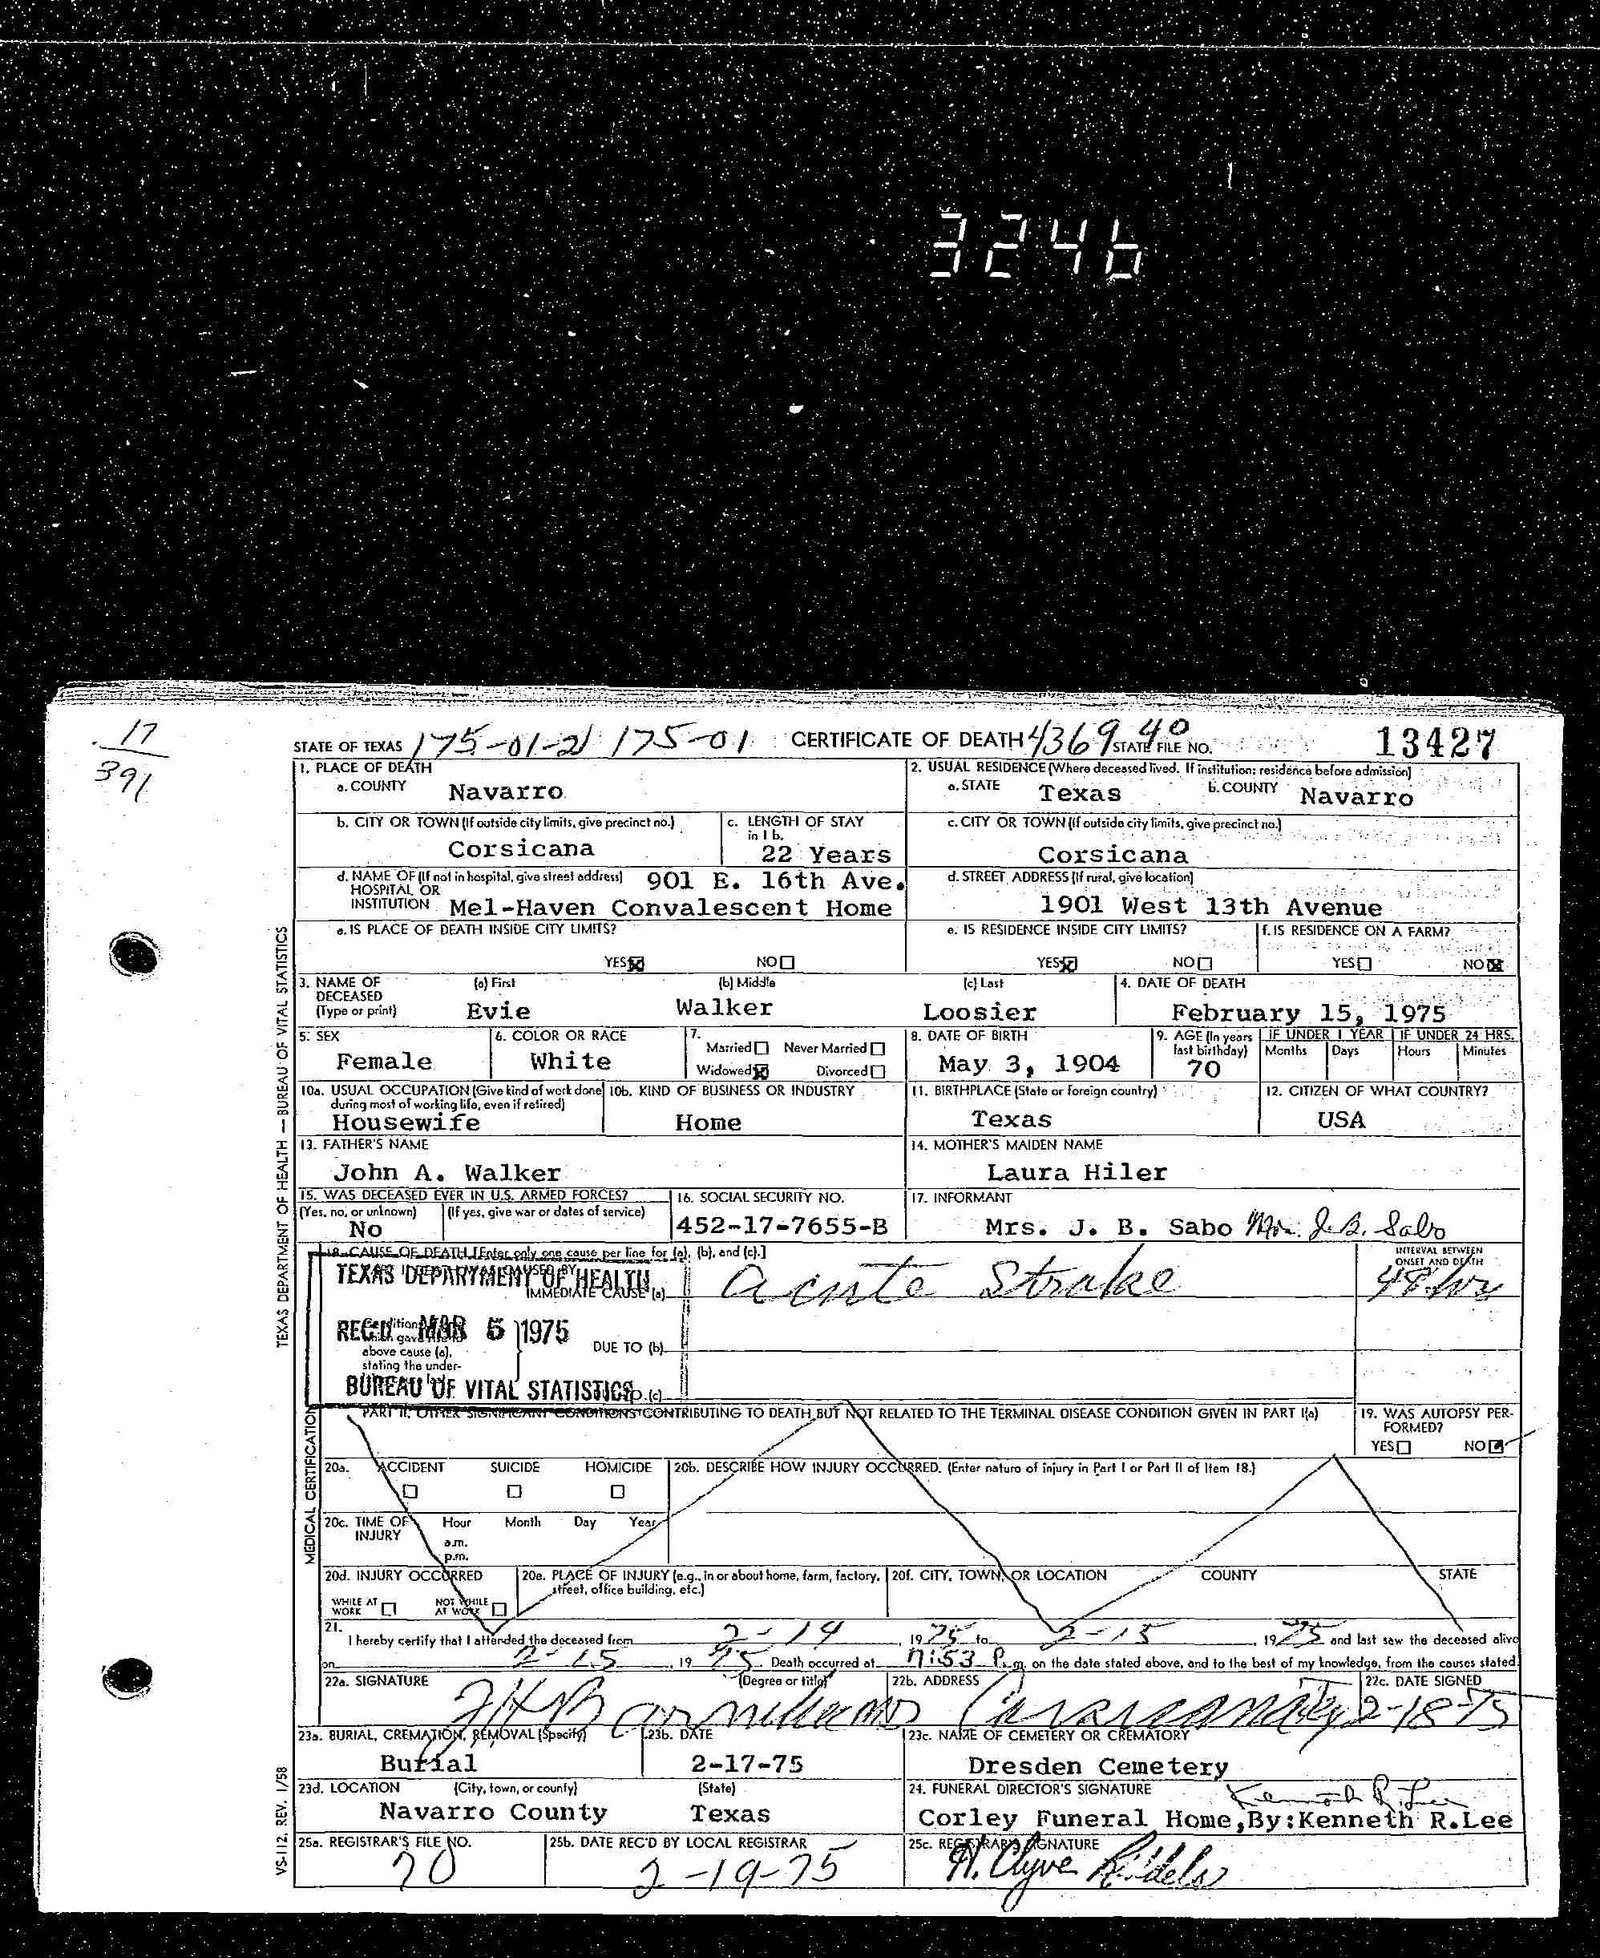 3246
17
391
STATE OF TEXAS 175-01-21 175-01 CERTIFICATE OF DEATH 4369 40 STATE FILE NO. 13427
1. PLACE OF DEATH
a. COUNTY Navarro
2. USUAL RESIDENCE (Where deceased lived. If institution: residence before admission)
a. STATE Texas b. COUNTY Navarro
b. CITY OR TOWN (If outside city limits, give precinct no.) Corsicana
c. LENGTH OF STAY in 1 b. 22 Years
c. CITY OR TOWN (If outside city limits, give precinct no.) Corsicana
d. NAME OF (If not in hospital, give street address) 901 E. 16th Ave.
HOSPITAL OR
INSTITUTION Mel-Haven Convalescent Home
d. STREET ADDRESS (If rural, give location)
1901 West 13th Avenue
e. IS PLACE OF DEATH INSIDE CITY LIMITS?
YES NO
e. IS RESIDENCE INSIDE CITY LIMITS?
YES NO
f. IS RESIDENCE ON A FARM?
YES NO
3. NAME OF DECEASED (Type or print)
(a) First (b) Middle (c) Last
Evie Walker Loosier
4. DATE OF DEATH
February 15, 1975
5. SEX
Female
6. COLOR OR RACE
White
7.
Married Never Married
Widowed Divorced
8. DATE OF BIRTH
May 3, 1904
9. AGE (In years last birthday)
70
IF UNDER 1 YEAR IF UNDER 24 HRS.
Months Days Hours Minutes
10a. USUAL OCCUPATION (Give kind of work done
during most of working life, even if retired)
Housewife
10b. KIND OF BUSINESS OR INDUSTRY
Home
11. BIRTHPLACE (State or foreign country)
Texas
12. CITIZEN OF WHAT COUNTRY?
USA
13. FATHER'S NAME
John A. Walker
14. MOTHER'S MAIDEN NAME
Laura Hiler
15. WAS DECEASED EVER IN U.S. ARMED FORCES?
(Yes, no, or unknown) (If yes, give war or dates of service)
No
16. SOCIAL SECURITY NO.
452-17-7655-B
17. INFORMANT
Mrs. J. B. Sabo Mrs. J. B. Sabo
18. CAUSE OF DEATH [Enter only one cause per line for (a), (b), and (c).]
INTERVAL BETWEEN
ONSET AND DEATH
TEXAS DEPARTMENT OF HEALTH
IMMEDIATE CAUSE (a) Acute Stroke 48 hrs
REC'D MAR 5 1975
above cause (a),
stating the under-
DUE TO (b)
BUREAU OF VITAL STATISTICS
(c)
PART II. OTHER SIGNIFICANT CONDITIONS CONTRIBUTING TO DEATH BUT NOT RELATED TO THE TERMINAL DISEASE CONDITION GIVEN IN PART I(a)
19. WAS AUTOPSY PER-
FORMED?
YES NO
20a. ACCIDENT SUICIDE HOMICIDE
20b. DESCRIBE HOW INJURY OCCURRED. (Enter nature of injury in Part I or Part II of Item 18.)
20c. TIME OF INJURY Hour Month Day Year
a.m.
p.m.
20d. INJURY OCCURRED
WHILE AT WORK NOT WHILE AT WORK
20e. PLACE OF INJURY (e.g., in or about home, farm, factory,
street, office building, etc.)
20f. CITY, TOWN, OR LOCATION COUNTY STATE
21.
I hereby certify that I attended the deceased from 2-14, 1975 to 2-15 1975 and last saw the deceased alive
on 2-15, 1975. Death occurred at 7:53 P.m. on the date stated above, and to the best of my knowledge, from the causes stated.
22a. SIGNATURE (Degree or title)
22b. ADDRESS
Corsicana Tex
22c. DATE SIGNED
2-18-75
23a. BURIAL, CREMATION, REMOVAL (Specify)
Burial
23b. DATE
2-17-75
23c. NAME OF CEMETERY OR CREMATORY
Dresden Cemetery
23d. LOCATION (City, town, or county) (State)
Navarro County Texas
24. FUNERAL DIRECTOR'S SIGNATURE Kenneth R. Lee
Corley Funeral Home,By:Kenneth R.Lee
25a. REGISTRAR'S FILE NO.
70
25b. DATE REC'D BY LOCAL REGISTRAR
2-19-75
25c. REGISTRAR'S SIGNATURE
TEXAS DEPARTMENT OF HEALTH — BUREAU OF VITAL STATISTICS
MEDICAL CERTIFICATION
VS-112 REV. 1/58